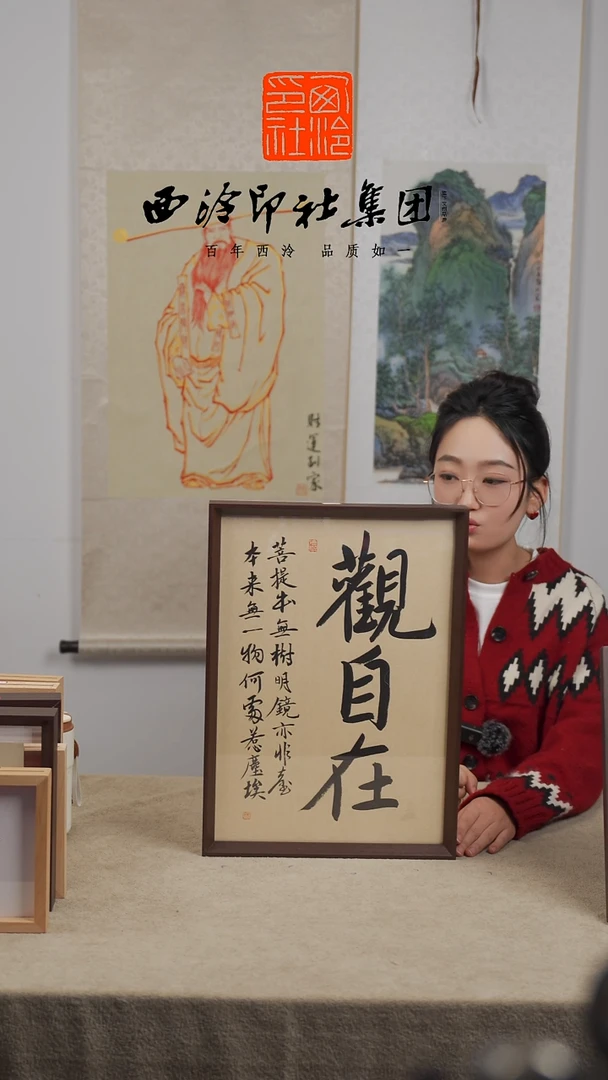 西泠印社
西泠印社集团
百年西泠 品质如一
財運到家
觀自在
菩提本無樹明鏡亦非臺
本来無一物何處惹塵埃